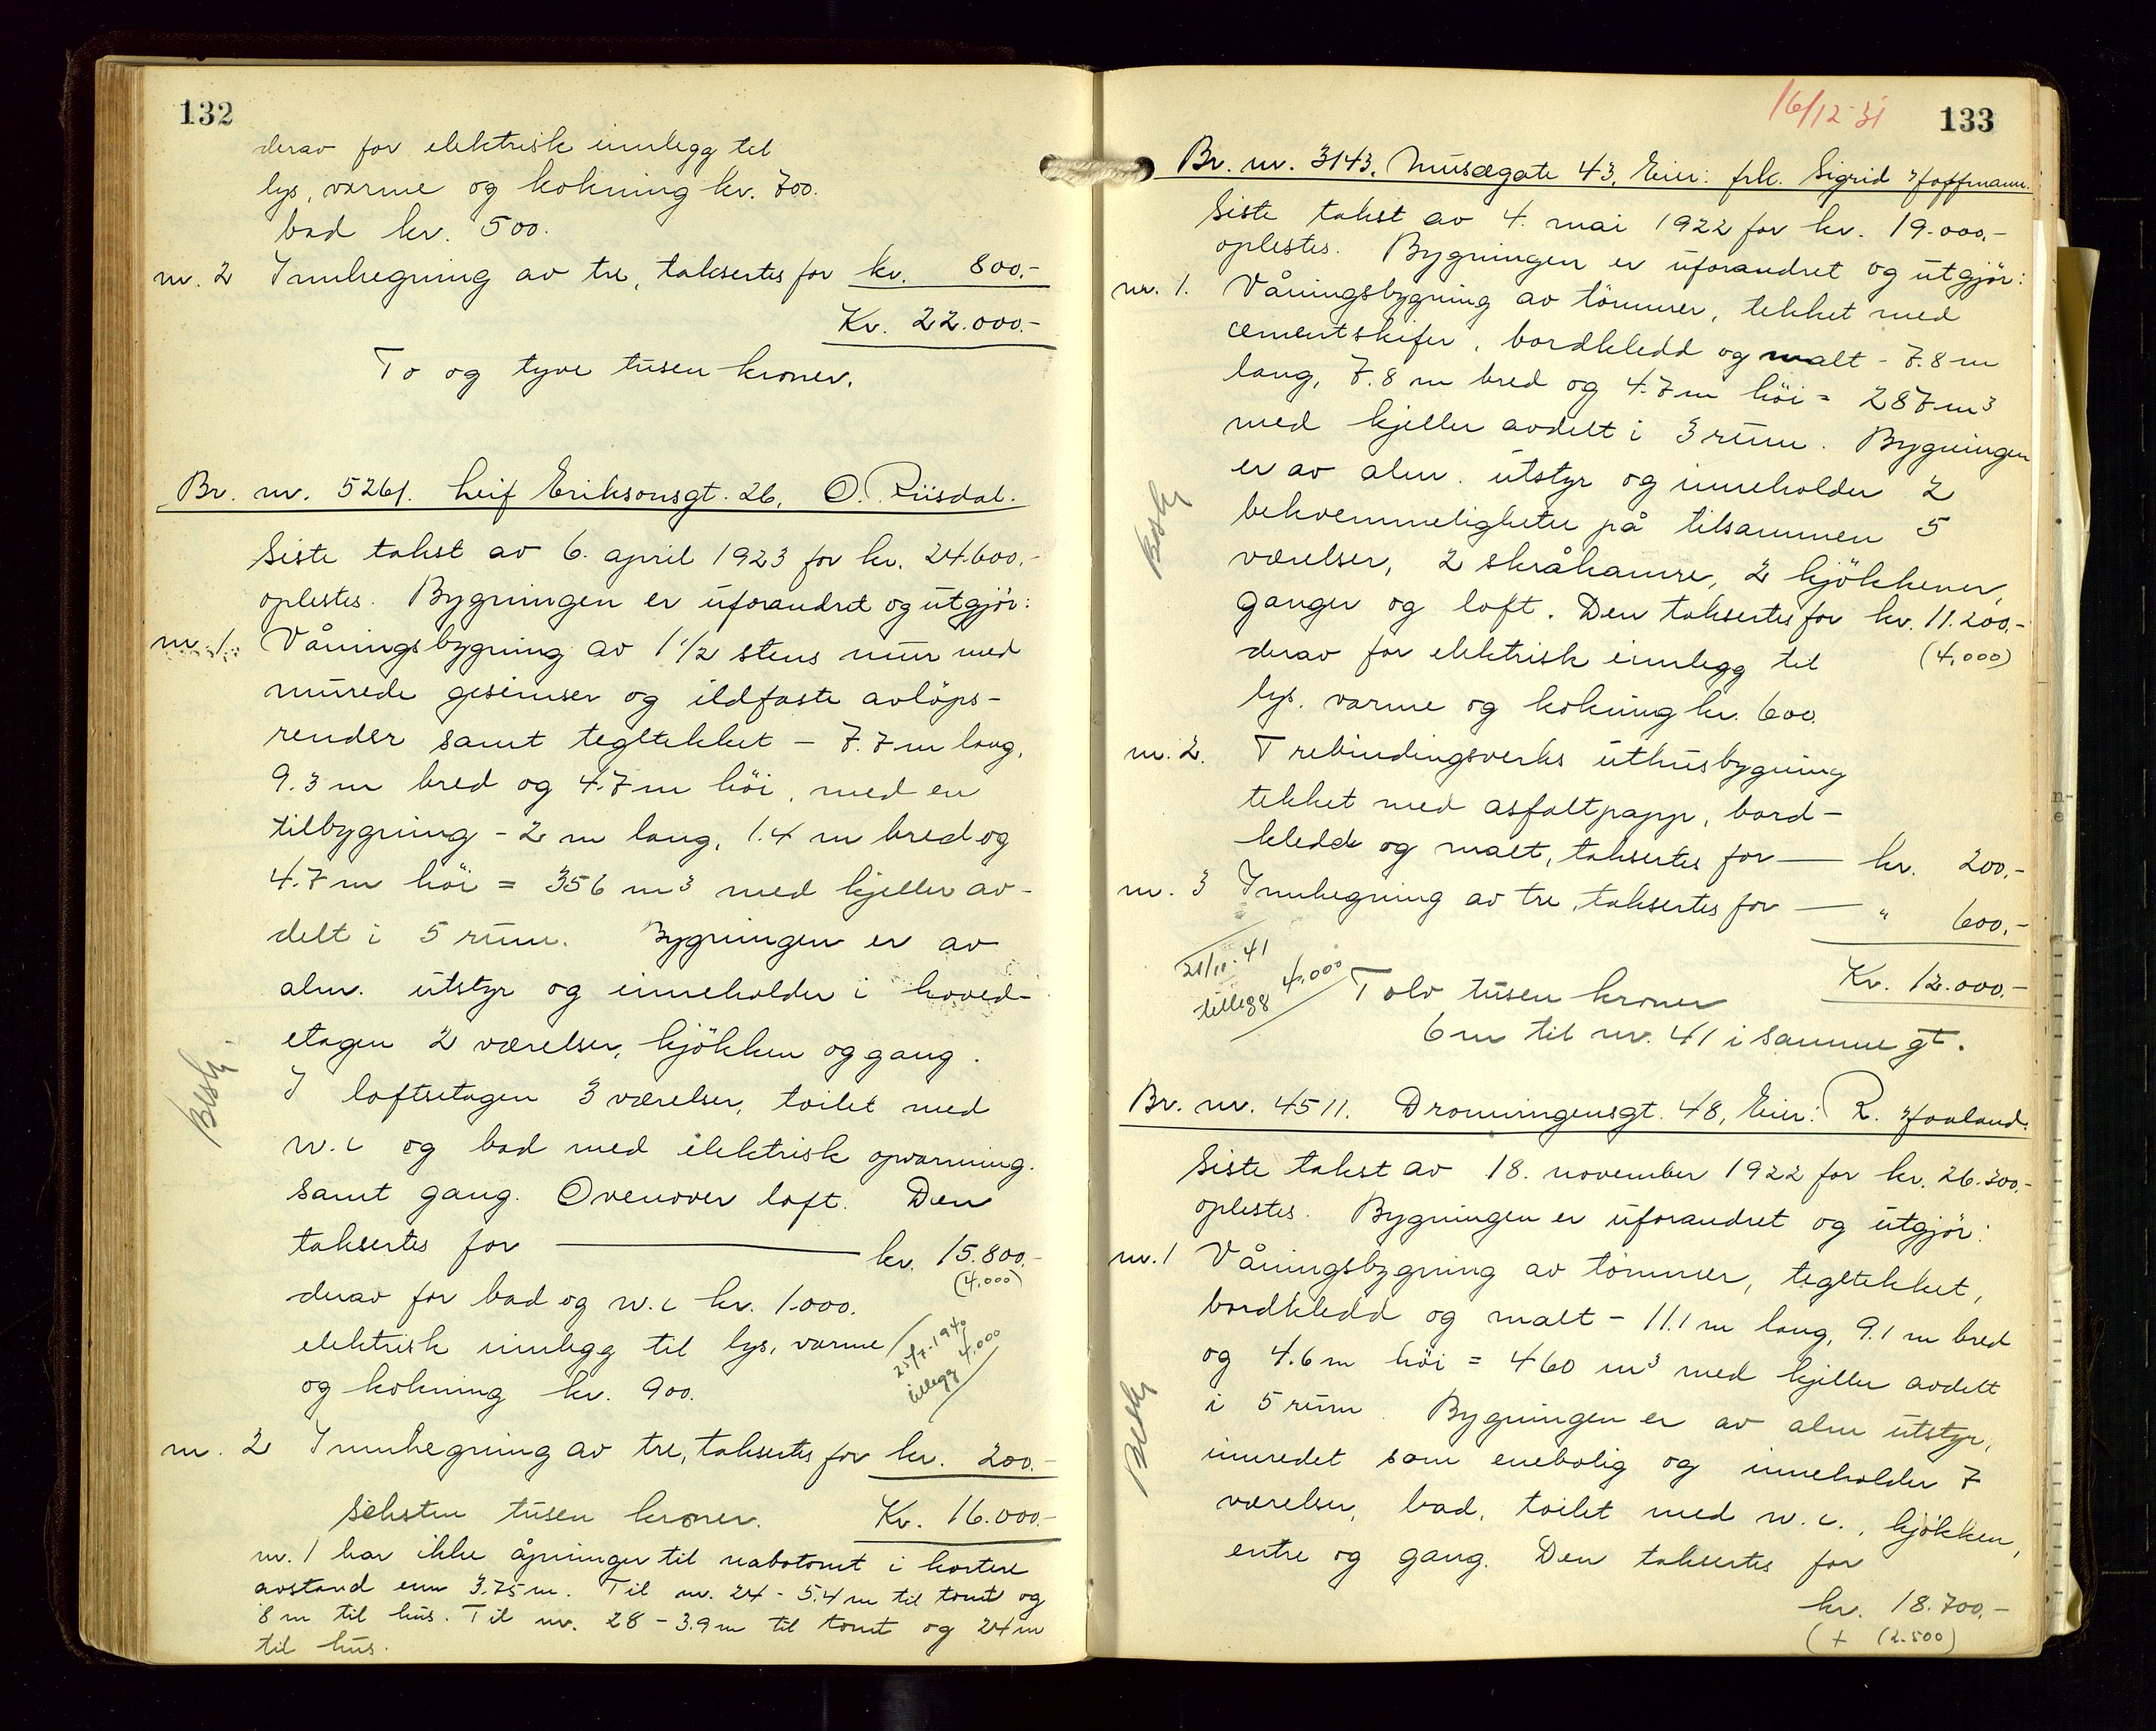 132
derav for elektrisk innlegg til
lys, varme og kokning kr. 700.
bad kr. 500.
nr. 2 Innhegning av tre, taksertes for kr. 800.-
Kr. 22.000.-
To og tyve tusen kroner.
Br. nr. 5261. Leif Eriksonsgt. 26, O. Riisdal.
Siste takst av 6. april 1923 for kr. 24.600.-
oplestes. Bygningen er uforandret og utgjör:
nr. 1. Våningsbygning av 1 1/2 stens mur med
murede gesimser og ildfaste avlöps-
render samt tegltekket - 7.7 m lang,
9.3 m bred og 4.7 m höi, med en
tilbygning - 2 m lang, 1.4 m bred og
4.7 m höi = 356 m3 med kjeller av-
delt i 5 rum. Bygningen er av
alm. utstyr og inneholder i hoved-
etagen 2 værelser, kjökken og gang.
I loftsetagen 3 værelser, toilet med
w.c og bad med elektrisk opvarming.
samt gang. Ovenover loft. Den
taksertes for kr. 15.800.-
(4.000)
derav for bad og w.c kr. 1.000.
elektrisk innlegg til lys, varme
og kokning kr. 900.
25/7-1940
tillegg 4.000
Besk.
nr. 2 Innhegning av tre, taksertes for kr. 200.-
Seksten tusen kroner. Kr. 16.000.-
nr. 1 har ikke åpninger til nabotomt i kortere
avstand enn 3.75 m. Til nr. 24 - 5.4 m til tomt og
8 m til hus. Til nr. 28 - 3.9 m til tomt og 24 m
til hus.
16/12-31
133
Br. nr. 3143. Musægate 43, Eier: frk. Sigrid Hoffmann.
Siste takst av 4. mai 1922 for kr. 19.000.-
oplestes. Bygningen er uforandret og utgjör:
nr. 1. Våningsbygning av tömmer, tekket med
cementskifer, bordkledd og malt - 7.8 m
lang, 7.8 m bred og 4.7 m höi = 287 m3
med kjeller avdelt i 3 rum. Bygningen
er av alm. utstyr og inneholder 2
bekvemmeligheter på tilsammen 5
værelser, 2 skråkamre, 2 kjökkener,
ganger og loft. Den taksertes for kr. 11.200.-
(4,000)
derav for elektrisk innlegg til
lys, varme og kokning kr. 600.
Besk
nr. 2. Trebindingsverks uthusbygning
tekket med asfaltpapp, bord-
kledd og malt, taksertes for kr. 200.-
nr. 3 Innhegning av tre, taksertes for " 600.-
21/11-41
tillegg 4,000
Tolv tusen kroner Kr. 12.000.-
6 m til nr. 41 i samme gt.
Br. nr. 4511. Dronningensgt. 48, Eier: R. Haaland.
Siste takst av 18. november 1922 for kr. 26.300.-
oplestes. Bygningen er uforandret og utgjör:
nr. 1 Våningsbygning av tömmer, tegltekket,
bordkledd og malt - 11.1 m lang, 9.1 m bred
og 4.6 m höi = 460 m3 med kjeller avdelt
i 5 rum. Bygningen er av alm utstyr,
innredet som enebolig og inneholder 7
værelser, bad, toilet med w.c., kjökken,
entre og gang. Den taksertes for
kr. 18.700.-
(+ (2.500)
Besk